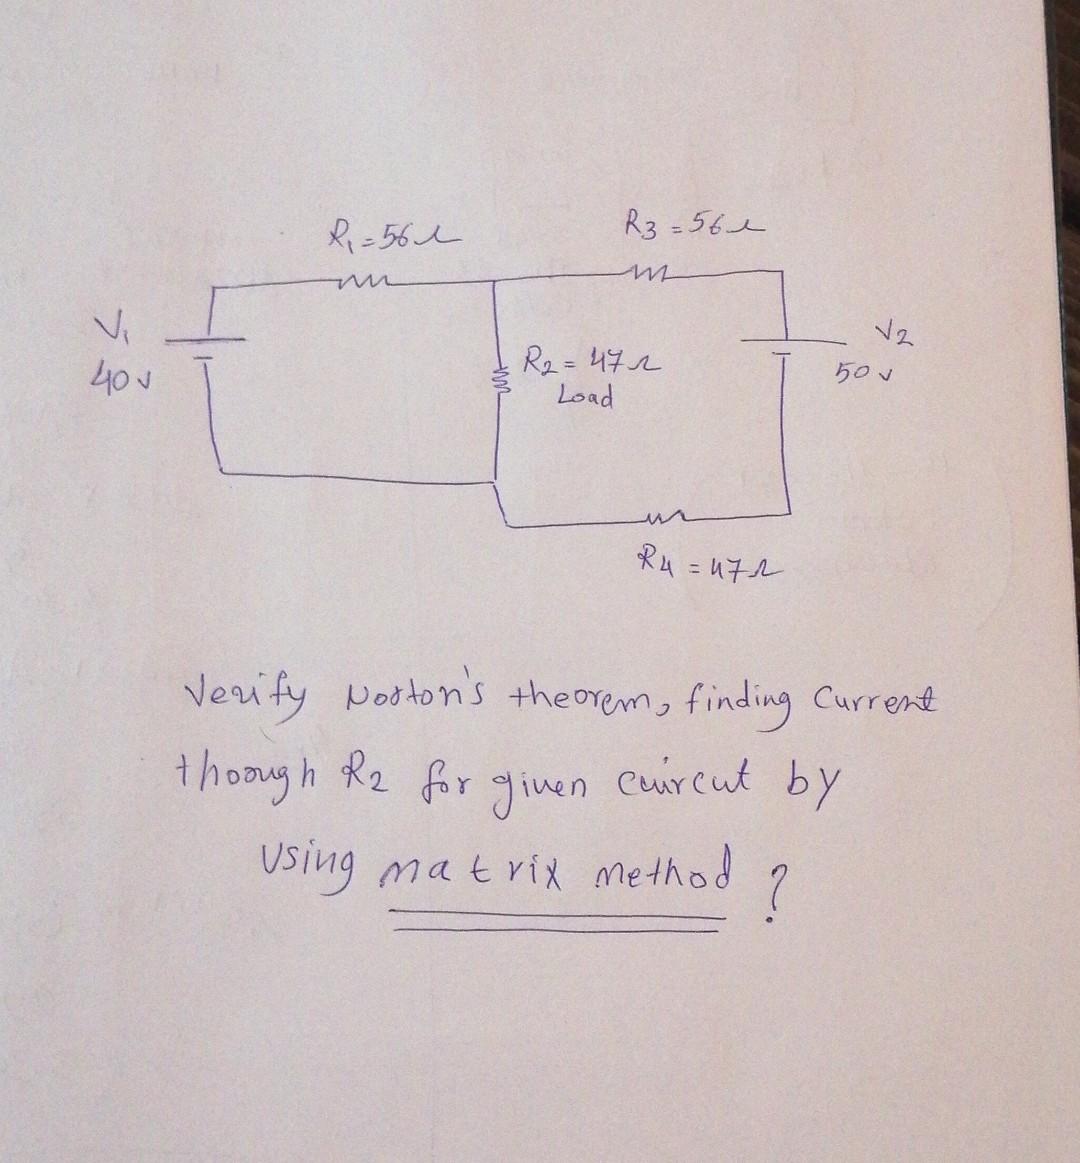 R₁ = 56Ω
R3 = 56Ω
V₁
40 v
R₂ = 47Ω
Load
V2
50 v
R4 = 47Ω
Verify Norton's theorem, finding Current
thoough R2 for given cuircut by
using matrix method ?